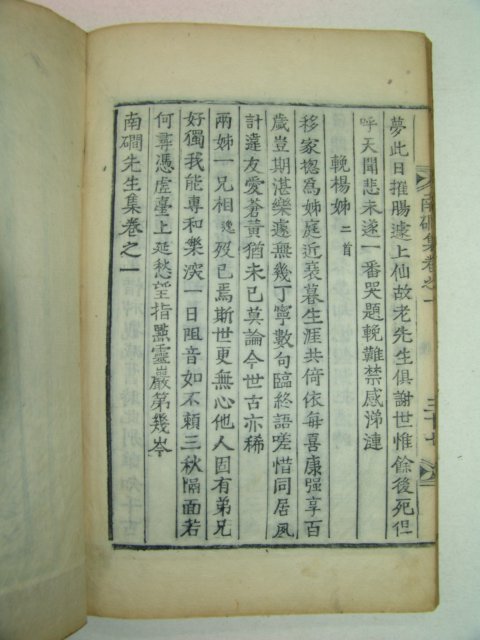 夢此日摧腸遽上仙故老先生俱謝世惟餘後死但
呼天聞悲未遂一番哭題輓難禁感涕漣
輓楊姊 二首
移家摠爲姊庭近衰暮生涯共倚依每喜康强享百
歲豈期湛樂遽無幾丁寧數句臨終語嗟惜同居夙
計違友愛蒼黃猶未已莫論今世古亦稀
兩姊一兄相逸歿已焉斯世更無心他人固有弟兄
好獨我能專和樂湥一日阻音如不頼三秋隔面若
何尋憑虛臺上延愁望指點靈巖第幾岑
南磵先生集卷之一
南磵集卷之一
三十七